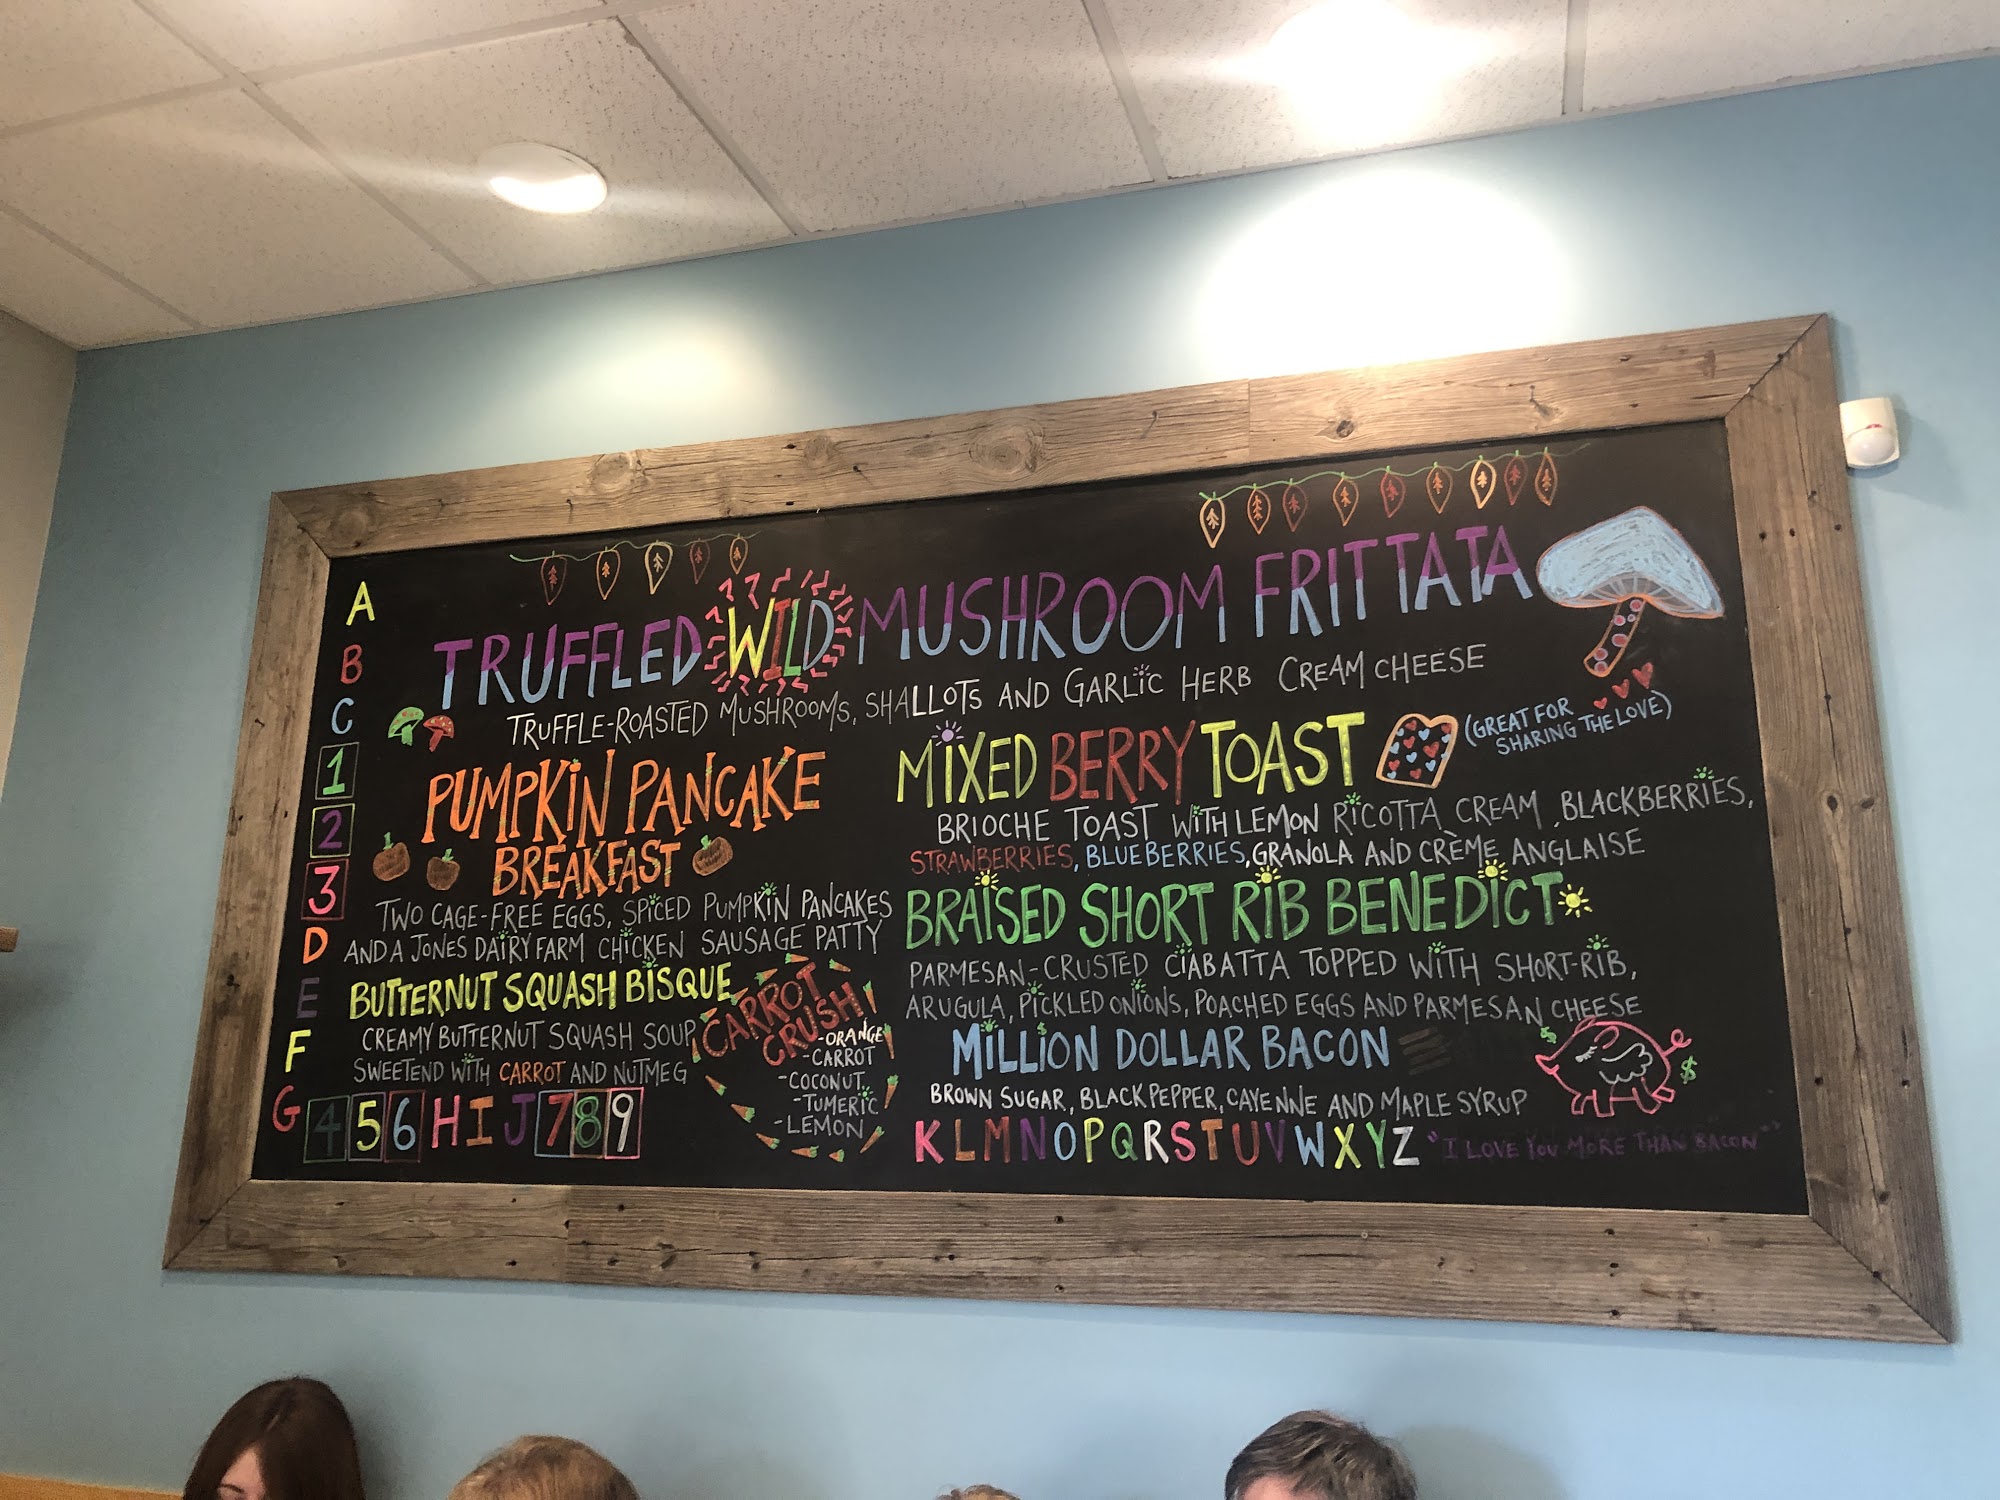 A
B
C
1
2
3
D
E
F
G
4 5 6 H I J 7 8 9
TRUFFLED WILD MUSHROOM FRITTATA
TRUFFLE-ROASTED MUSHROOMS, SHALLOTS AND GARLIC HERB CREAM CHEESE
PUMPKIN PANCAKE
BREAKFAST
TWO CAGE-FREE EGGS, SPICED PUMPKIN PANCAKES
AND A JONES DAIRY FARM CHICKEN SAUSAGE PATTY
BUTTERNUT SQUASH BISQUE
CREAMY BUTTERNUT SQUASH SOUP,
SWEETEND WITH CARROT AND NUTMEG
CARROT
CRUSH
-ORANGE
-CARROT
-COCONUT
-TUMERIC
-LEMON
MIXED BERRY TOAST
(GREAT FOR
SHARING THE LOVE)
BRIOCHE TOAST WITH LEMON RICOTTA CREAM, BLACKBERRIES,
STRAWBERRIES, BLUEBERRIES, GRANOLA AND CRÈME ANGLAISE
BRAISED SHORT RIB BENEDICT
PARMESAN-CRUSTED CIABATTA TOPPED WITH SHORT-RIB,
ARUGULA, PICKLED ONIONS, POACHED EGGS AND PARMESAN CHEESE
MILLION DOLLAR BACON
$
$
BROWN SUGAR, BLACK PEPPER, CAYENNE AND MAPLE SYRUP
K L M N O P Q R S T U V W X Y Z "I LOVE YOU MORE THAN BACON"